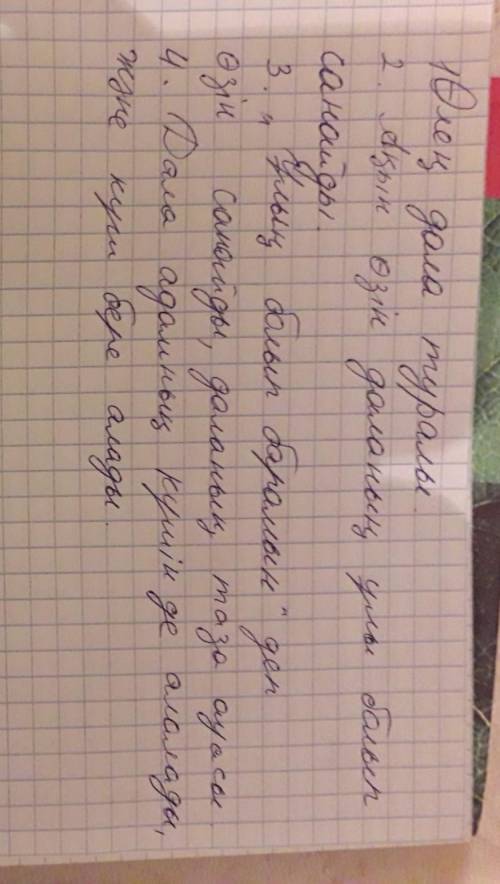 1 Өлең дала туралы.
2. Ақын өзін даланың ұлы болып
санайды.
3. "Ұлың болып барамын" деп
өзін санайды, даланың таза ауасы
4. Дала адамның күшін де алалады,
және күш бере алады.